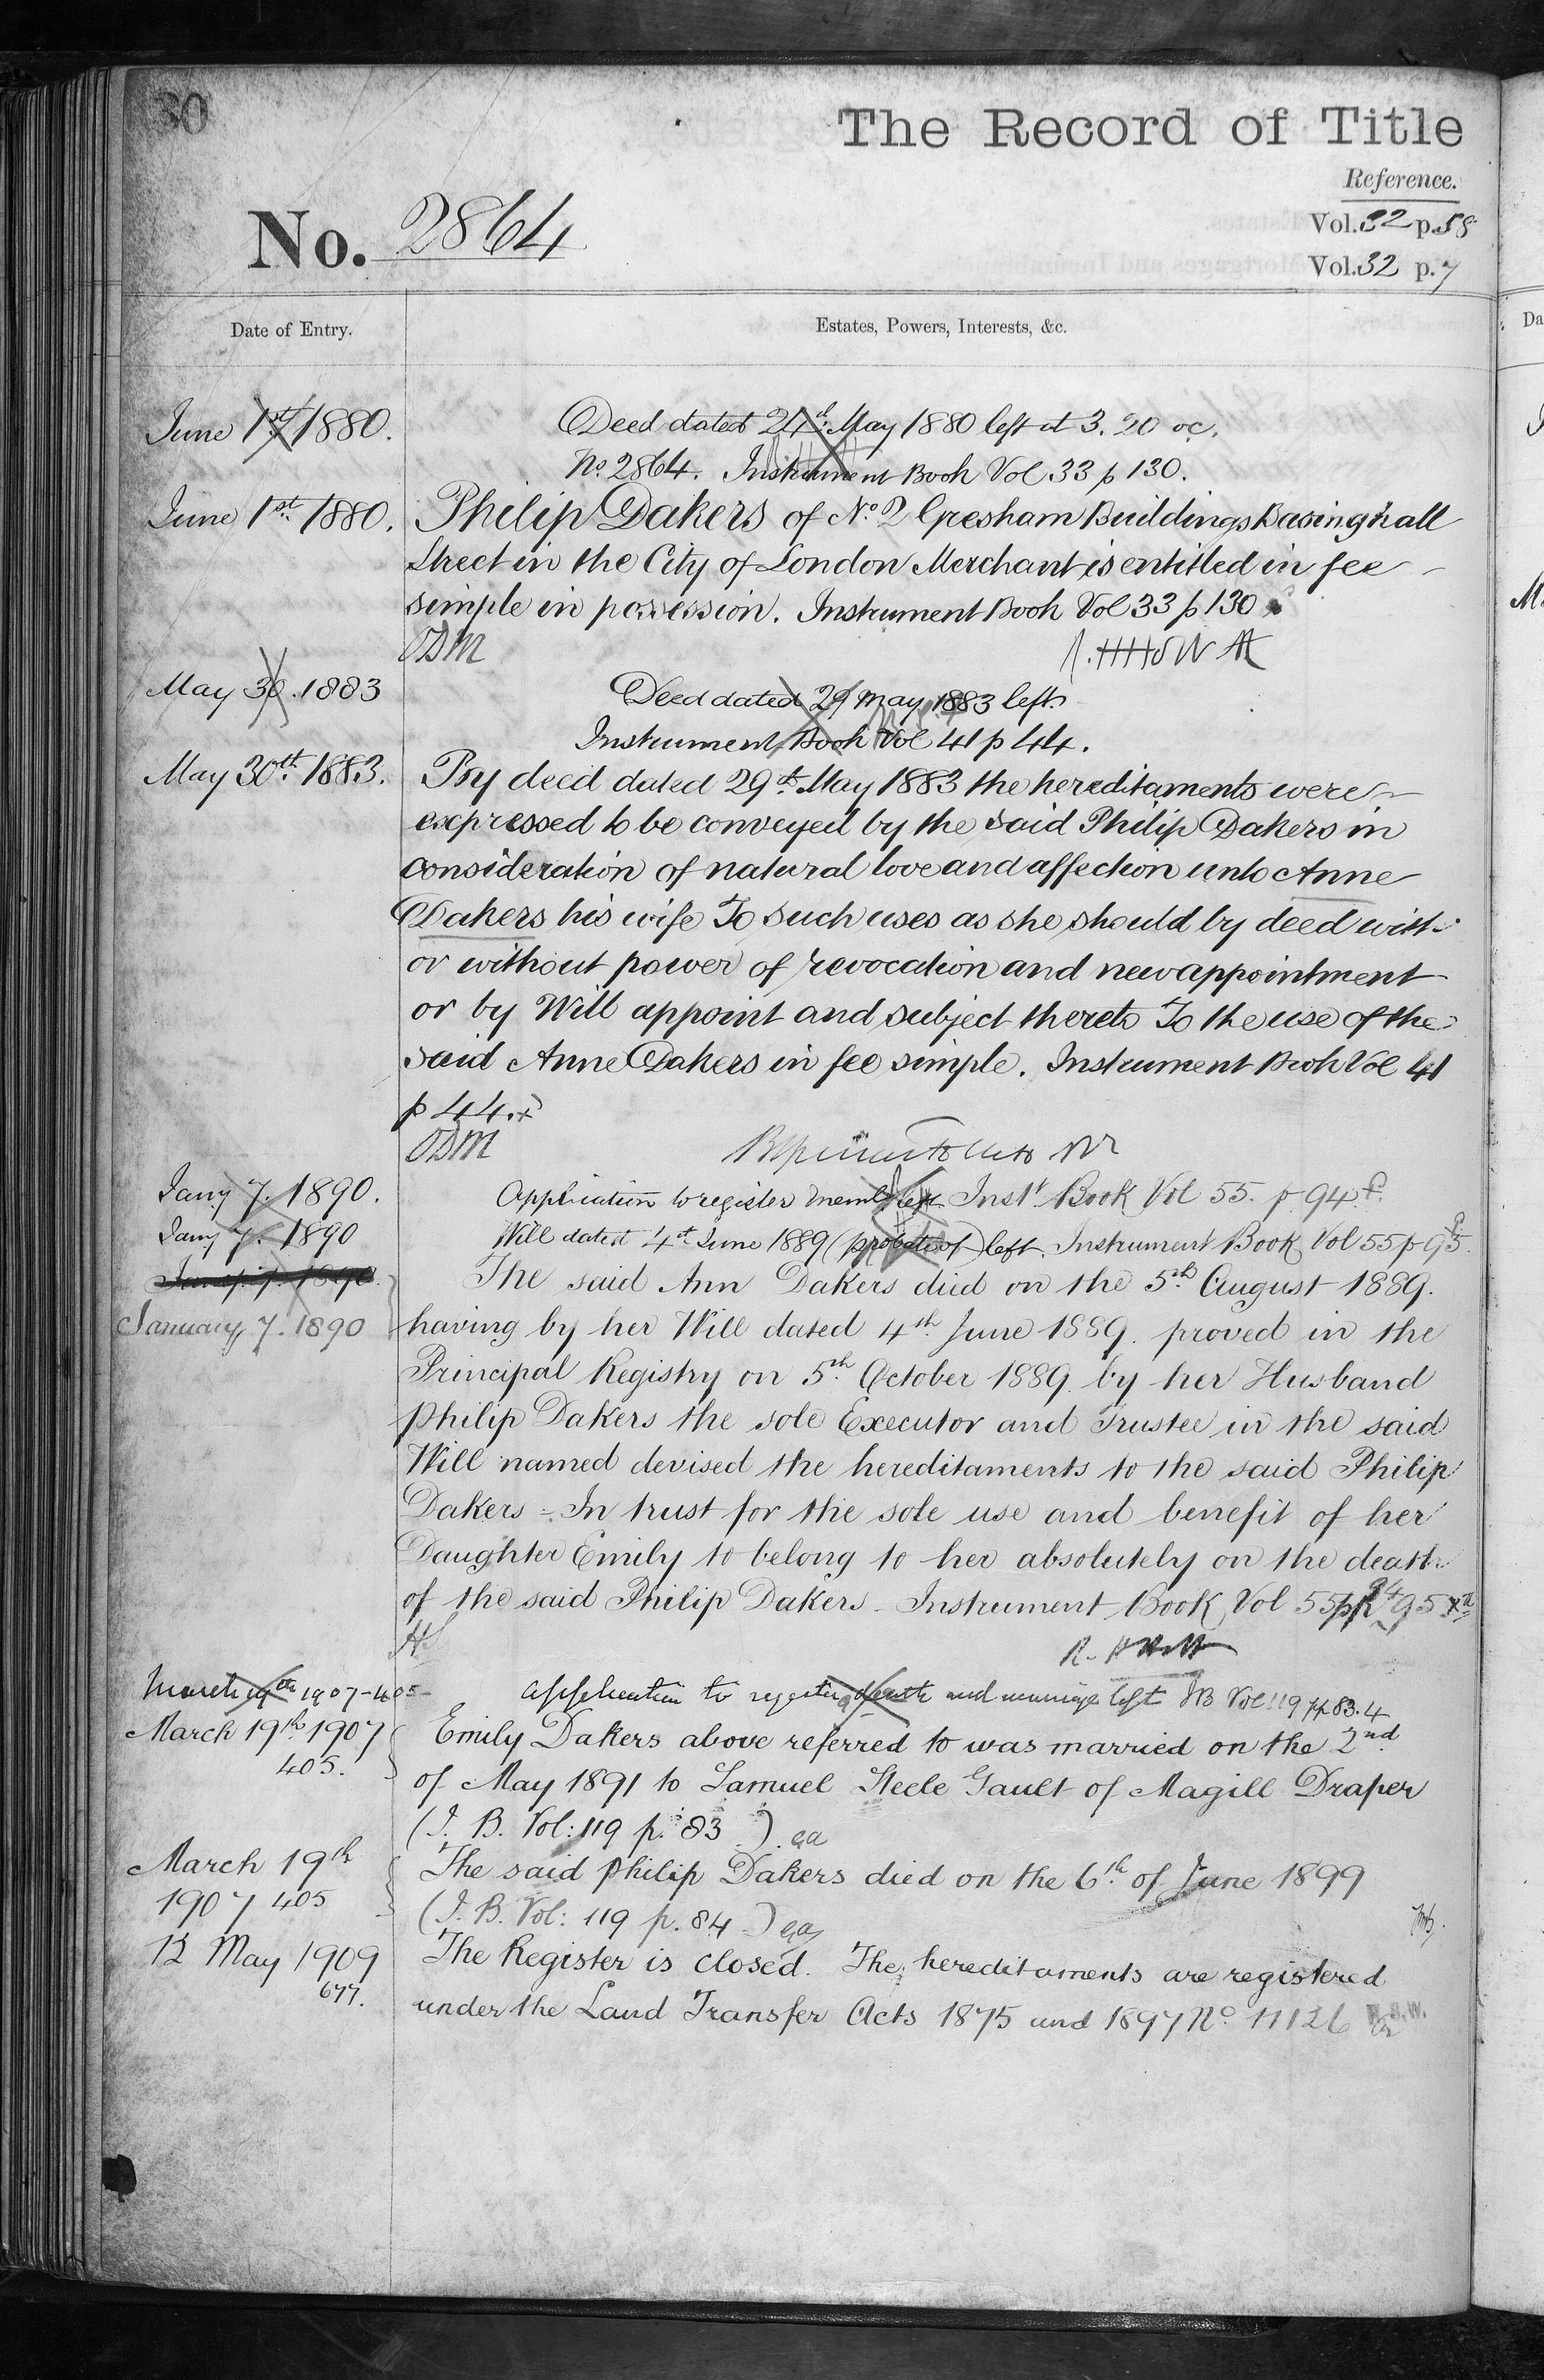 30
The Record of Title
Reference.
No. 2864
Vol. 32 p. 58
Vol. 32 p. 7
Date of Entry.
Estates, Powers, Interests, &c.
June 1st 1880.
Deed dated 24th May 1880 left at 3.20 oc.
No. 2864. Instrument Book Vol 33 p 130.
June 1st 1880.
Philip Dakers of No. 2 Gresham Buildings Basinghall
Street in the City of London Merchant is entitled in fee
simple in possession. Instrument Book Vol 33 p 130
ODM
May 30. 1883
Deed dated 29 May 1883 left.
Instrument Book Vol 41 p 44.
May 30th 1883.
By deed dated 29th May 1883 the hereditaments were
expressed to be conveyed by the said Philip Dakers in
consideration of natural love and affection unto Anne
Dakers his wife To such uses as she should by deed with
or without power of revocation and new appointment
or by Will appoint and subject thereto To the use of the
said Anne Dakers in fee simple. Instrument Book Vol 41
p 44.
ODM
Jany 7. 1890.
Application to register left Inst Book Vol 55. p 94
Jany 7. 1890
Will dated 4th June 1889 (probate of) left. Instrument Book Vol 55 p 95
January 7. 1890
The said Ann Dakers died on the 5th August 1889.
having by her Will dated 4th June 1889. proved in the
Principal Registry on 5th October 1889. by her Husband
Philip Dakers the sole Executor and Trustee in the said
Will named devised the hereditaments to the said Philip
Dakers = In trust for the sole use and benefit of her
Daughter Emily to belong to her absolutely on the death
of the said Philip Dakers. Instrument Book Vol 55 p 94 95
March 19th 1907-405-
application to register death and marriage left IB Vol 119 pp 83.4
March 19th 1907
405.
Emily Dakers above referred to was married on the 2nd
of May 1891 to Samuel Steele Gault of Magill Draper
(I. B. Vol: 119 p. 83 ) ea
March 19th
1907 405
The said Philip Dakers died on the 6th of June 1899
(I. B. Vol: 119 p. 84 ) ea
12 May 1909
677.
The Register is closed. The hereditaments are registered
under the Land Transfer Acts 1875 and 1897 No. 11126
Da